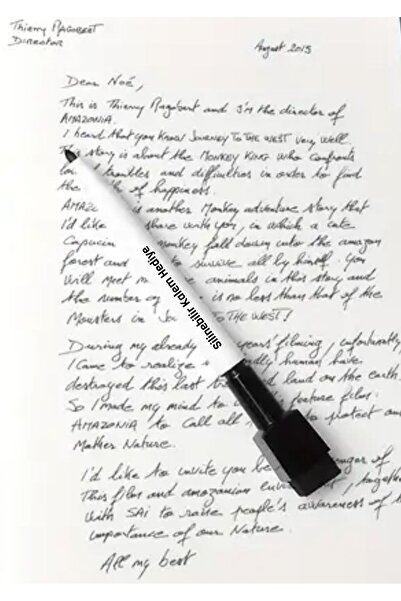 Thierry Ragobert
Director
August 2015
Dear Noé,
This is Thierry Ragobert and I'm the director of
AMAZONIA.
I heard that you know JOURNEY TO THE WEST very well.
This story is about the MONKEY KING who confronts
troubles and difficulties in order to find
the of happiness.
is another Monkey adventure story that
I'd like share with you, in which a cute
Capucin monkey fall down into the amazon
forest and to survive all by himself. You
will meet animals in this story and
the number is no less than that of the
Monsters in TO THE WEST!
During my already years filming, unfortunately
I came to realize human have
destroyed this last land on the earth.
So I made my mind to feature film:
AMAZONIA to call all to protect our
Mather Nature.
I'd like to invite you
this film and amazonian
with SAI to raise people's awareness of
importance of our Nature.
All my best
Silinebilir Kalem Hediye